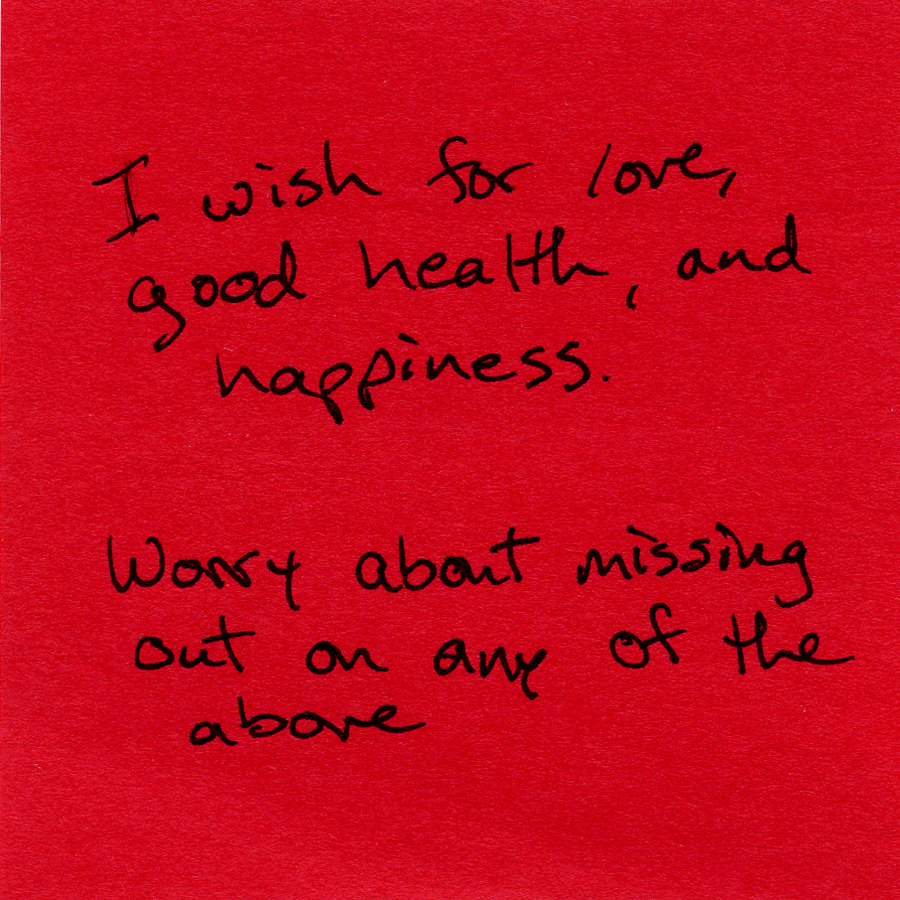 I wish for love,
good health, and
happiness.
Worry about missing
out on any of the
above